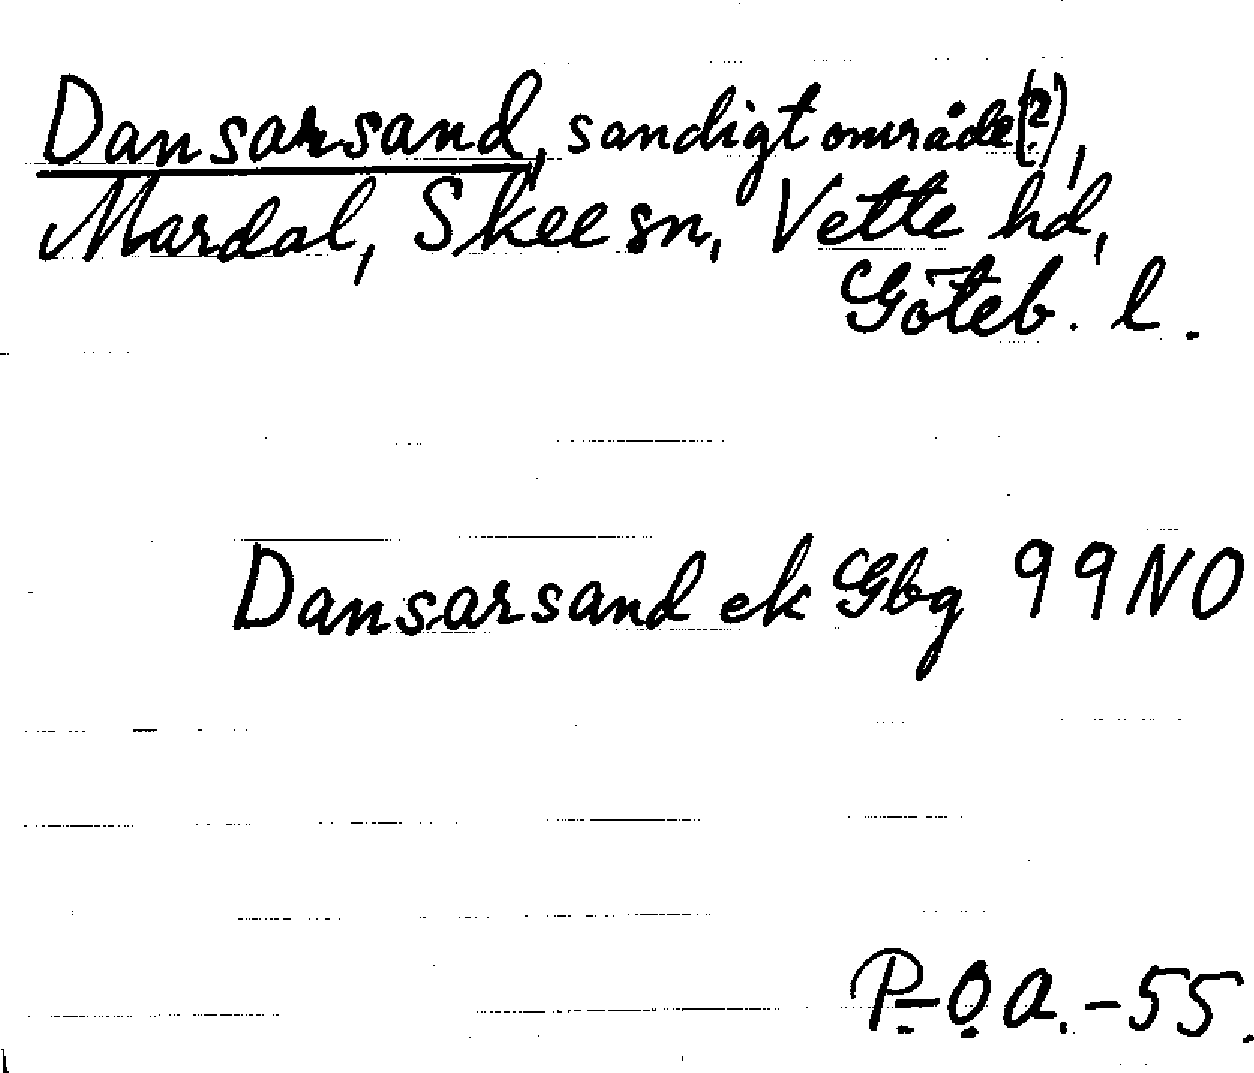 Dansarsand, sandigt område(?),
Mardal, Skee sn, Vette hd,
Göteb. l.
Dansarsand ek Gbg 99NO
P.-O.A.-55.